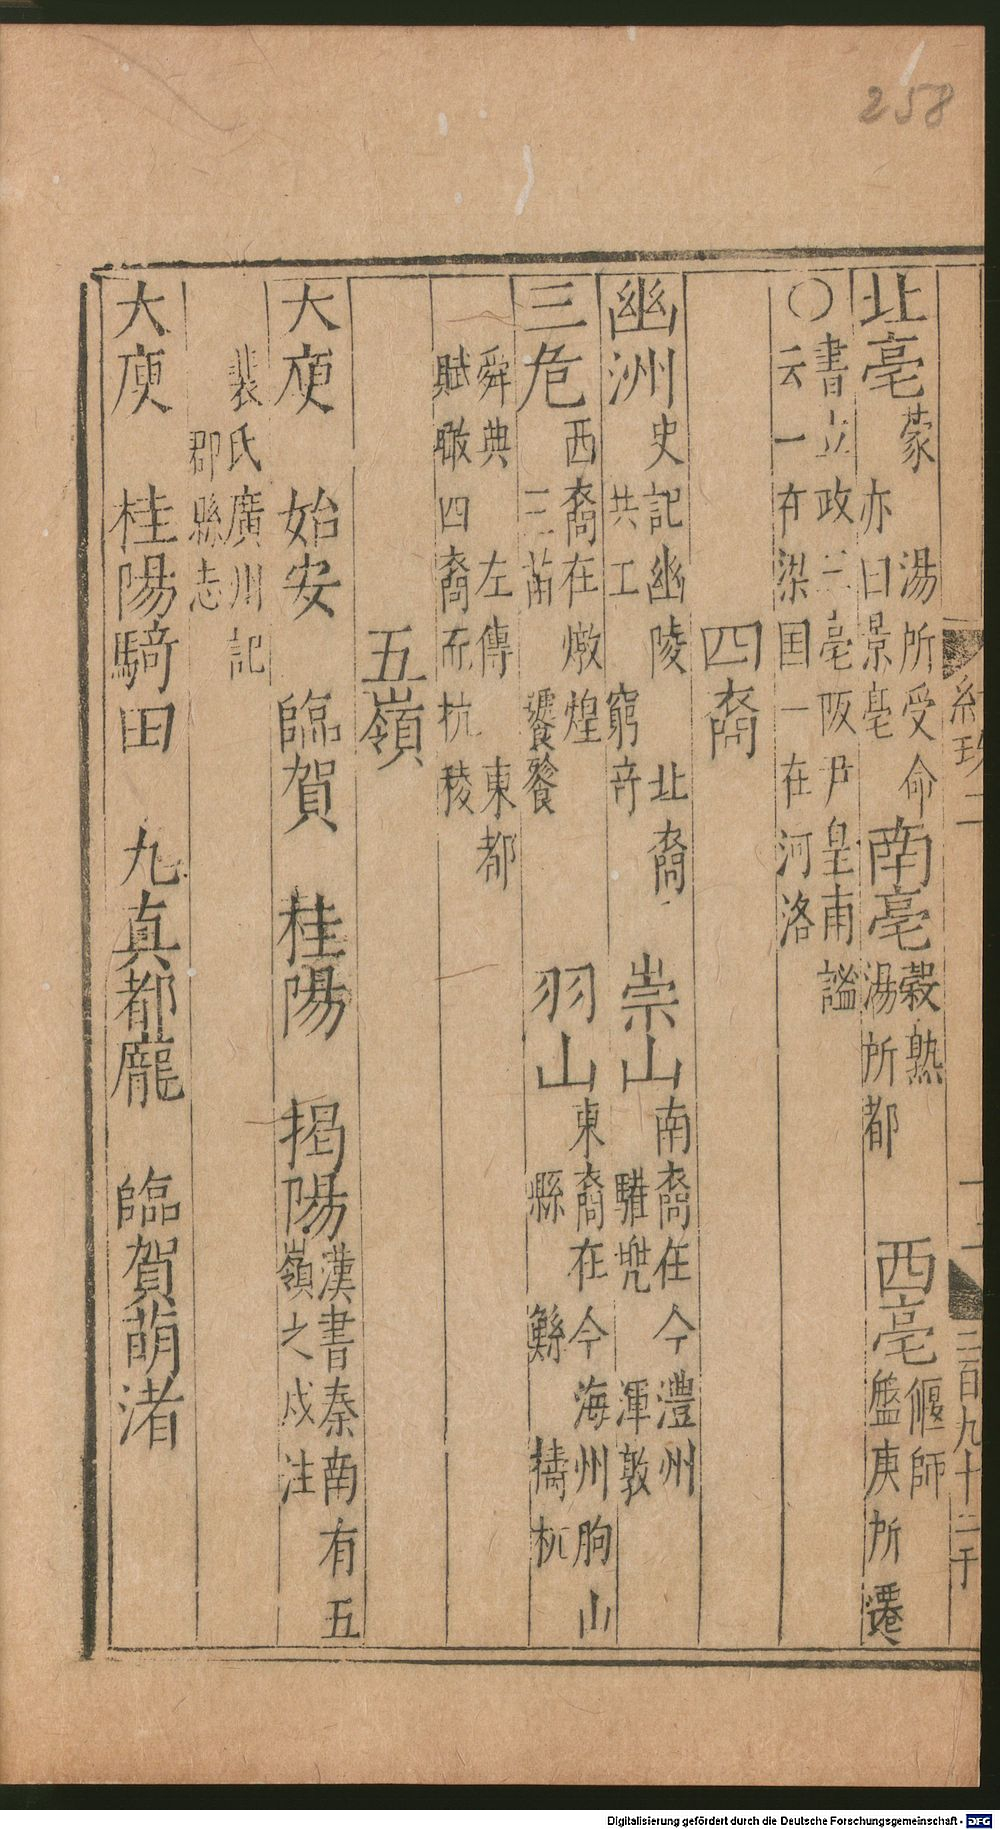 258
北亳蒙 湯所受命亦曰景亳 南亳穀熟湯所都 西亳偃師盤庚所遷
○書立政三亳阪尹皇甫謐云一在梁国一在河洛
四裔
幽洲史記幽陵 北裔共工 窮竒 崇山南裔在今澧州驩兜 渾敦
三危西裔在燉煌三苗 饕餮 羽山東裔在今海州朐山縣 鯀 檮杌
舜典 左傳 東都賦瞰四裔而抗稜
五嶺
大庾 始安 臨賀 桂陽 揭陽漢書秦南有五嶺之戍注
裴氏廣州記郡縣志
大庾 桂陽騎田 九真都龐 臨賀萌渚
二百九十二于
Digitalisierung gefördert durch die Deutsche Forschungsgemeinschaft - DFG